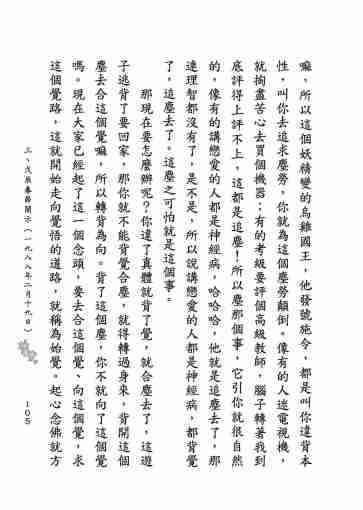 嘛。所以這個妖精變的烏雞國王，他發號施令，都是叫你違背本
性，叫你去追求塵勞。你就為這個塵勞顛倒。像有的人迷電視機，
就掏盡苦心去買個機器；有的考級要評個高級教師，腦子轉著我到
底評得上評不上，這都是追塵！所以塵那個事，它引你就很自然
的，像有的講戀愛的人都是神經病，哈哈哈，他就是追塵去了，那
連理智都沒有了，是不是，所以說講戀愛的人都是神經病，都背覺
了，追塵去了。這塵之可怕就是這個事。
那現在要怎麼辦呢？你違了真體就背了覺，就合塵去了，這遊
子逃背了要回家，那你就不能背覺合塵，就得轉過身來，背開這個
塵去合這個覺嘛，所以轉背為向。背了這個塵，你不就向了這個覺
嗎。現在大家已經起了這一個念頭，要去合這個覺、向這個覺，求
這個覺路，這就開始走向覺悟的道路，就稱為始覺。起心念佛就方
三、戊辰春節開示（一九八八年二月十九日）
105